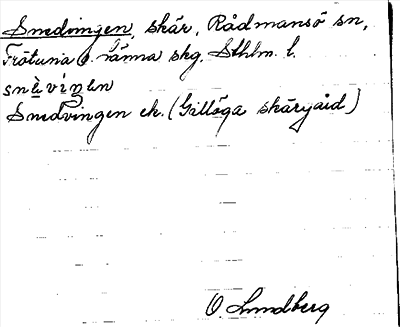 Smedvingen, skär, Rådmansö sn,
Frötuna o. Länna skg, Sthlm. l.
snèvíŋen
Smedvingen ek. (Gillöga skärgård)
O. Lundberg